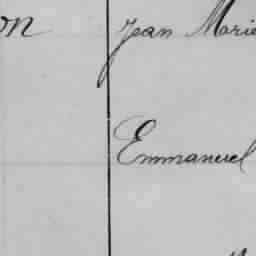 on Jean Marie
Emmanuel